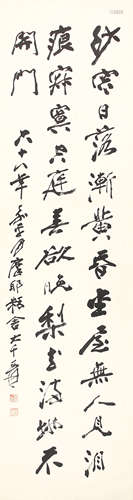 紗窗日落漸黃昏金屋無人見淚
痕寂寞空庭春欲晚梨花滿地不
開門
六十八年 月摩耶精舍大千爰